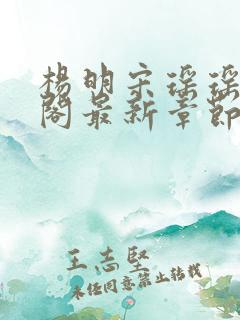 杨明宋瑶瑶
阁最新章节
王志坚
未经同意禁止转载